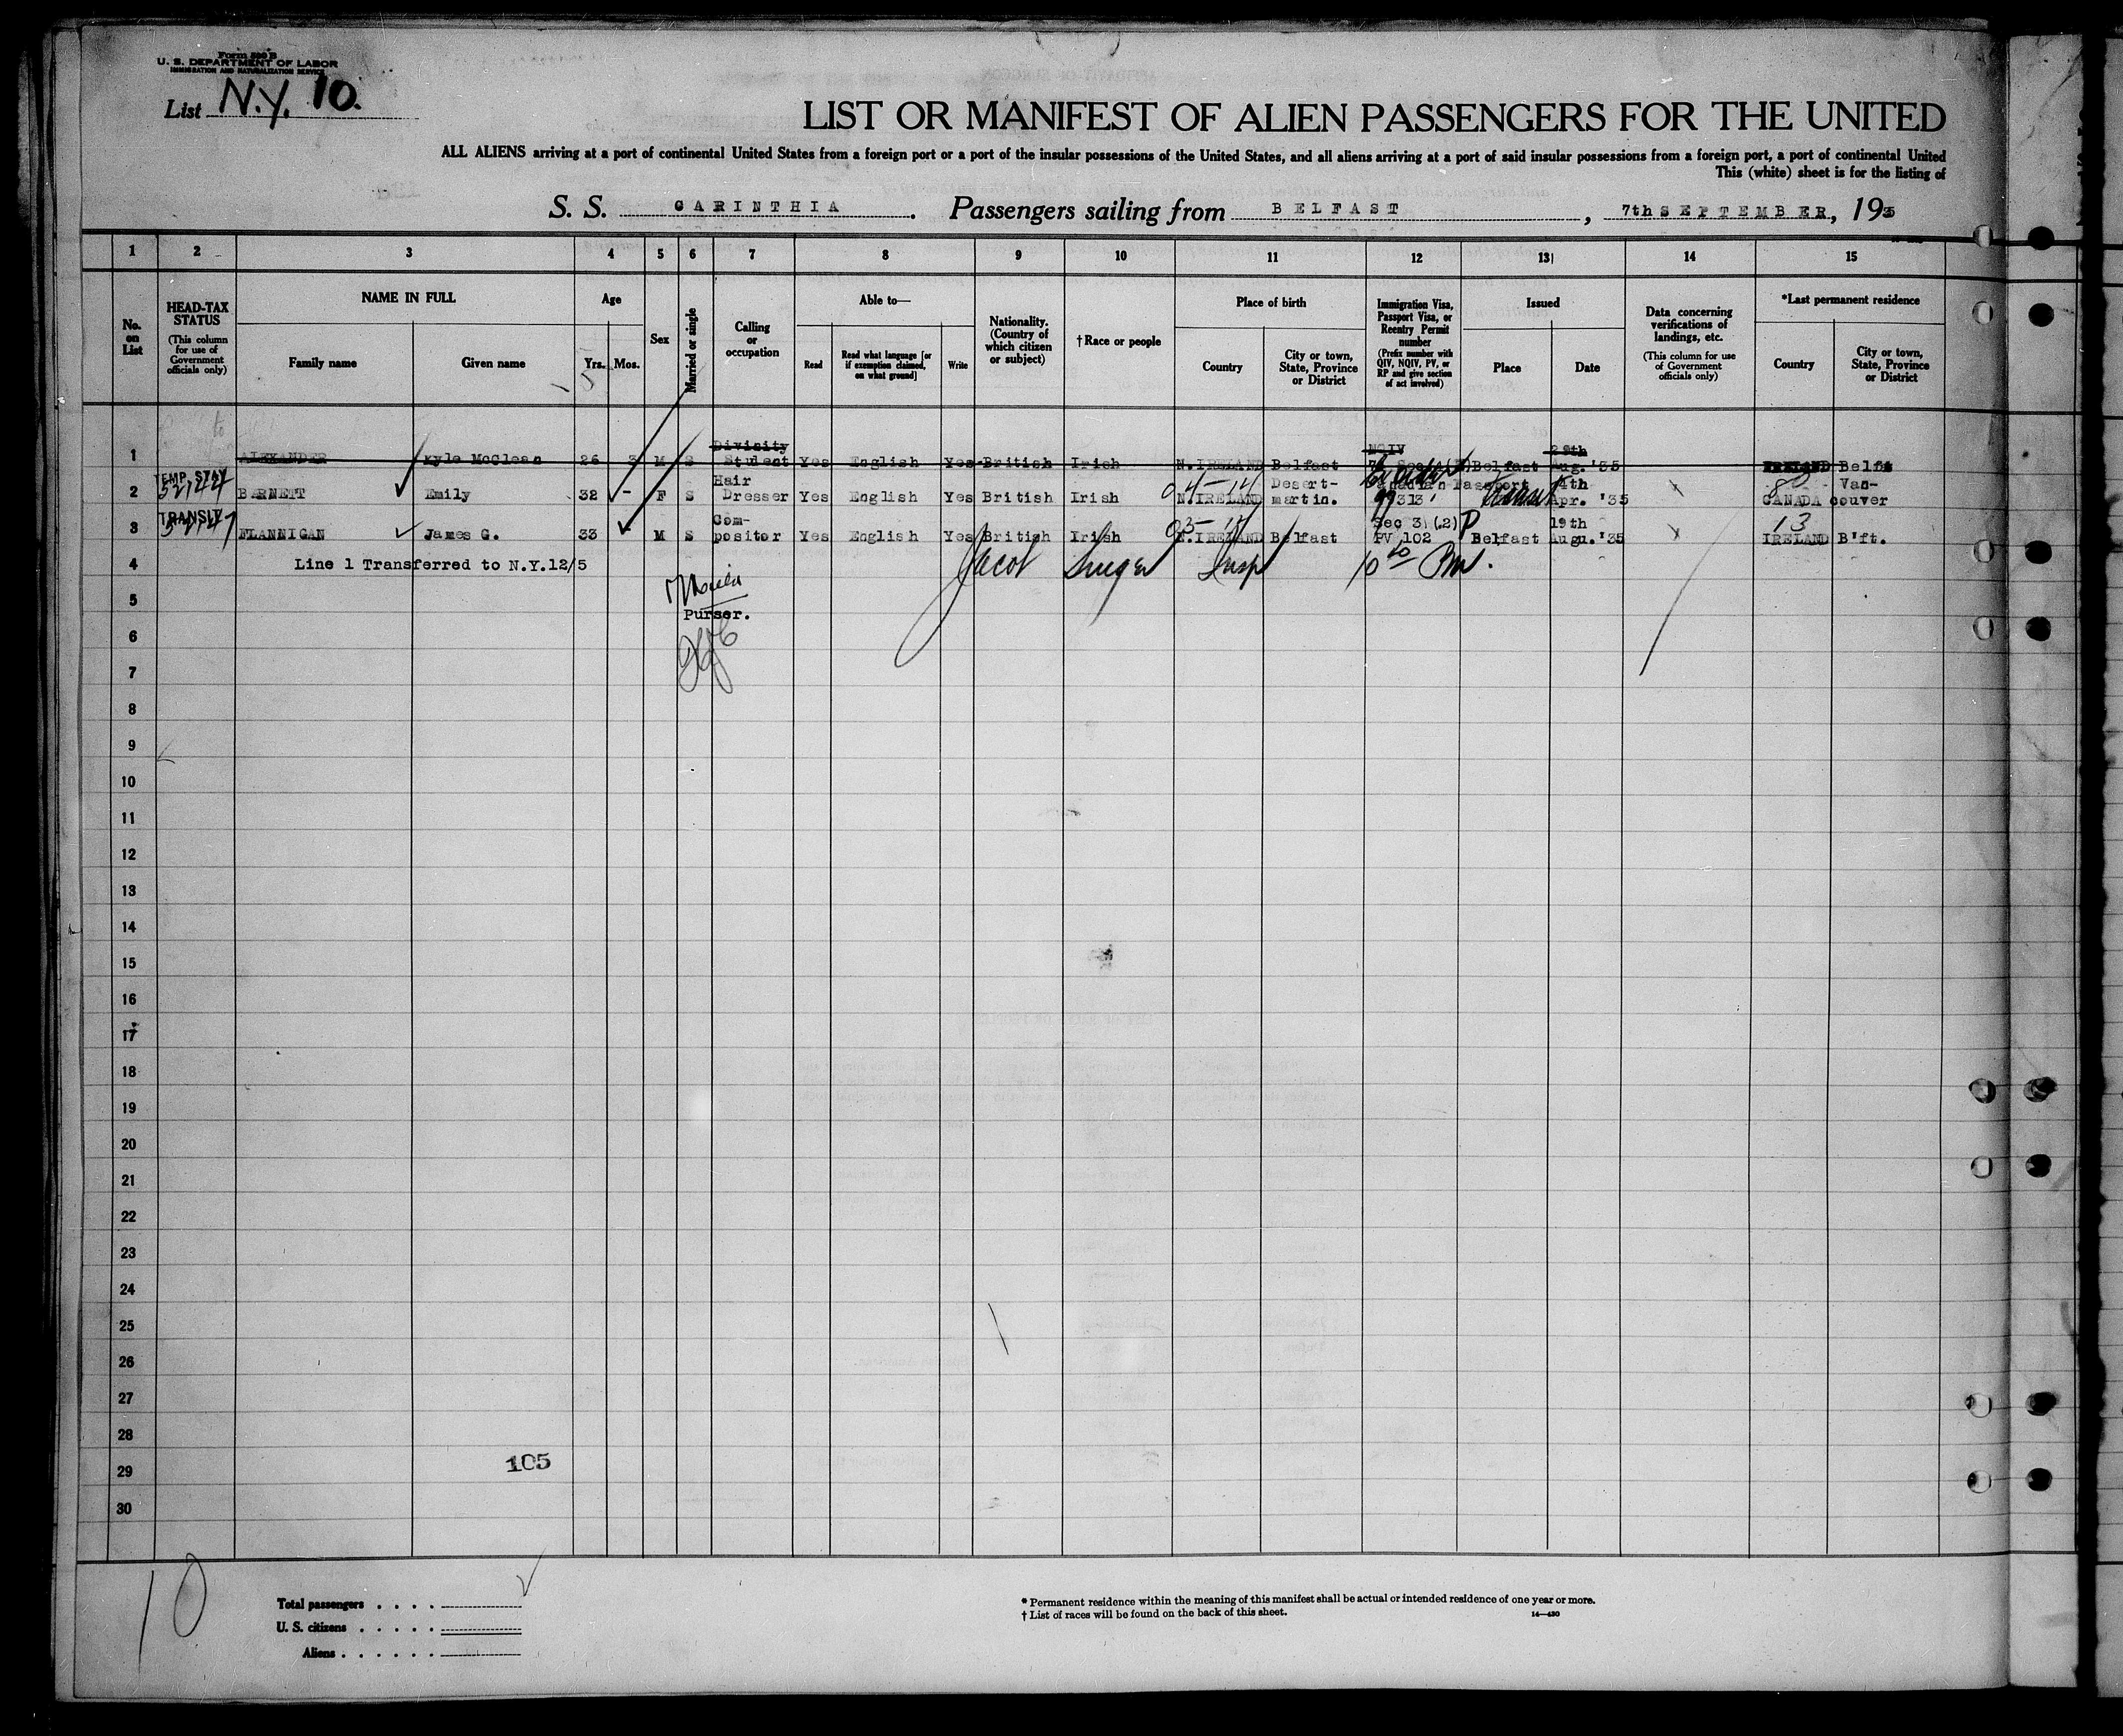 Form 500 B
U. S. DEPARTMENT OF LABOR
IMMIGRATION AND NATURALIZATION SERVICE
List N.Y. 10.
LIST OR MANIFEST OF ALIEN PASSENGERS FOR THE UNITED
ALL ALIENS arriving at a port of continental United States from a foreign port or a port of the insular possessions of the United States, and all aliens arriving at a port of said insular possessions from a foreign port, a port of continental United
This (white) sheet is for the listing of
S. S. CARINTHIA. Passengers sailing from BELFAST, 7th SEPTEMBER, 193
1 2 3 4 5 6 7 8 9 10 11 12 13 14 15
No. on List
HEAD-TAX STATUS (This column for use of Government officials only)
NAME IN FULL
Family name Given name
Age
Yrs. Mos.
Sex
Married or single
Calling or occupation
Able to—
Read Read what language [or if exemption claimed, on what ground] Write
Nationality. (Country of which citizen or subject)
†Race or people
Place of birth
Country City or town, State, Province or District
Immigration Visa, Passport Visa, or Reentry Permit number (Prefix number with QIV, NQIV, PV, or RP and give section of act involved)
Issued
Place Date
Data concerning verifications of landings, etc. (This column for use of Government officials only)
*Last permanent residence
Country City or town, State, Province or District
1 ALEXANDER Kyle McClean 26 3 M S Divinity Student Yes English Yes British Irish N.IRELAND Belfast NQIV Belfast 29th Aug.'35 IRELAND Belfs
TEMP. STAY
2 BARNETT Emily 32 - F S Hair Dresser Yes English Yes British Irish N.IRELAND Desert- martin. Canadian Passport 313 4th Apr. '35 CANADA Van- couver
TRANSIT
3 FLANNIGAN James G. 33 - M S Com- positor Yes English Yes British Irish N.IRELAND Belfast Sec 3 (2) PV 102 P Belfast 19th Augu.'35 13 IRELAND B'ft.
4 Line 1 Transferred to N.Y.12/5 Jacob Insp 10 PM.
5 Purser.
6
7
8
9
10
11
12
13
14
15
16
17
18
19
20
21
22
23
24
25
26
27
28
29 105
30
10
Total passengers . . . .
U. S. citizens . . . . .
Aliens . . . . . .
* Permanent residence within the meaning of this manifest shall be actual or intended residence of one year or more.
† List of races will be found on the back of this sheet. 14—430